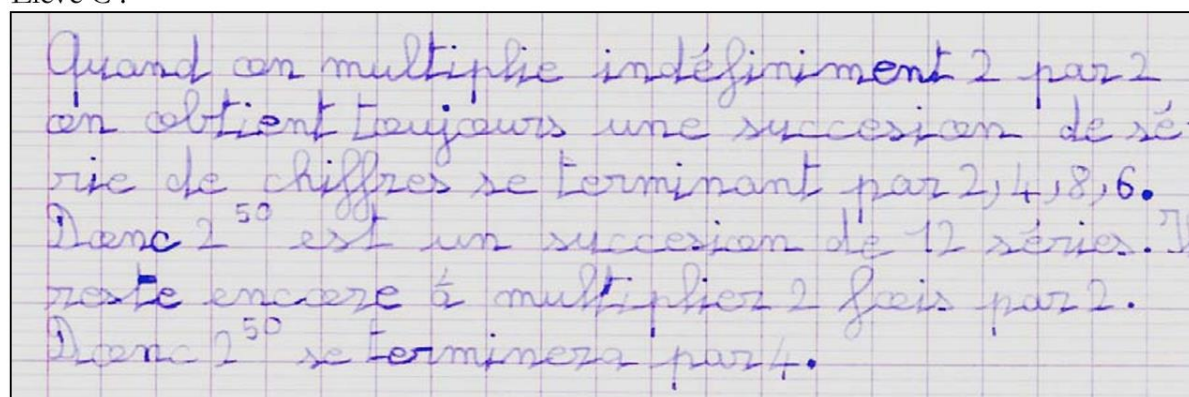 Quand on multiplie indéfiniment 2 par 2
on obtient toujours une succesion de sé-
rie de chiffres se terminant par 2,4,8,6.
Donc 2⁵⁰ est un succesion de 12 séries. Il
reste encore à multiplier 2 fois par 2.
Donc 2⁵⁰ se terminera par 4.